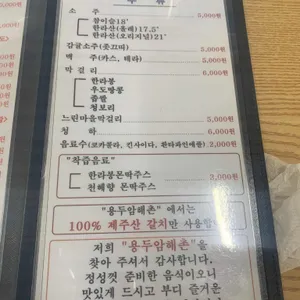 주 류
소 주 5,000원
참이슬18˚
한라산(올레)17.5˚
한라산(오리지널)21˚
감귤소주(풋끄마) 5,000원
맥 주(카스, 테라) 5,000원
막 걸 리 6,000원
한라봉
우도땅콩
좁쌀
청보리
느린마을막걸리 5,000원
청 하 6,000원
음료수(코카콜라, 킨사이다, 환타파인애플) 2,000원
"착즙음료"
한라봉몬딱주스
천혜향 몬딱주스 3,000원
"용두암해촌" 에서는
100% 제주산 갈치만 사용합
저희 "용두암해촌"을
찾아 주셔서 감사합니다.
정성껏 준비한 음식이오니
맛있게 드시고 부디 즐거운